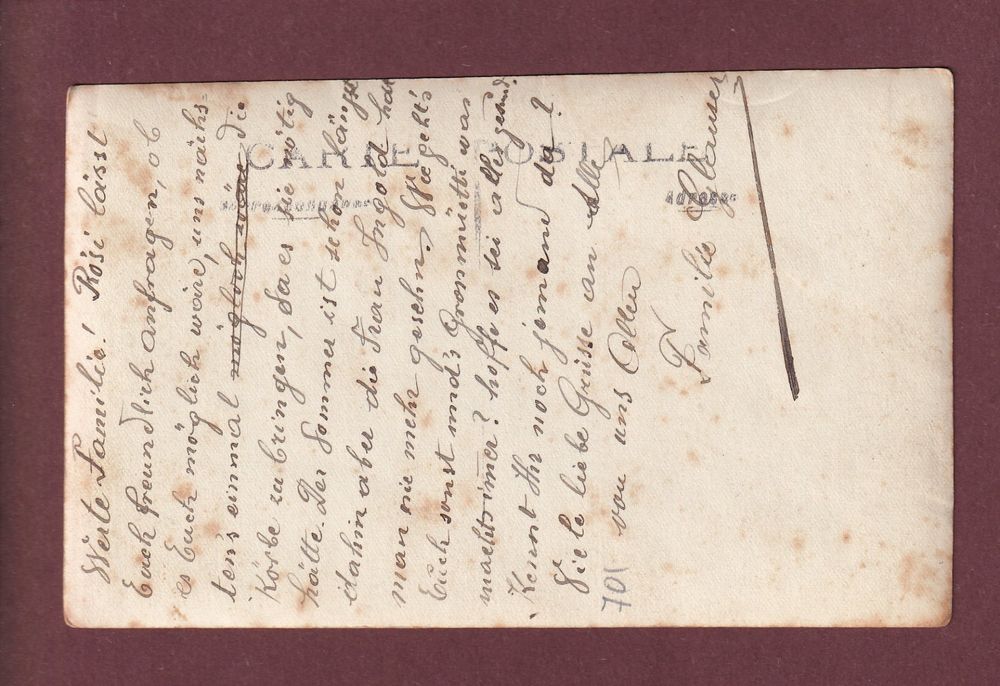 CARTE POSTALE
Adresse
Werte Familie! Rösi lässt
Euch freundlich anfragen, ob
es Euch möglich wäre, uns nächs-
tens einmal möglich wäre die
Körbe zu bringen, da es sie nötig
hätte. Der Sommer ist schon längst
dahin aber die Frau Ingold hat
man nie mehr gesehn. Wie geht's
Euch sonst und's Grosmüetti was
macht's immer? hoffe es sei alles gesund.
Kennt Ihr noch jemand da?
Viele liebe Grüsse an Alle
von uns Allen
Familie Glauser
701